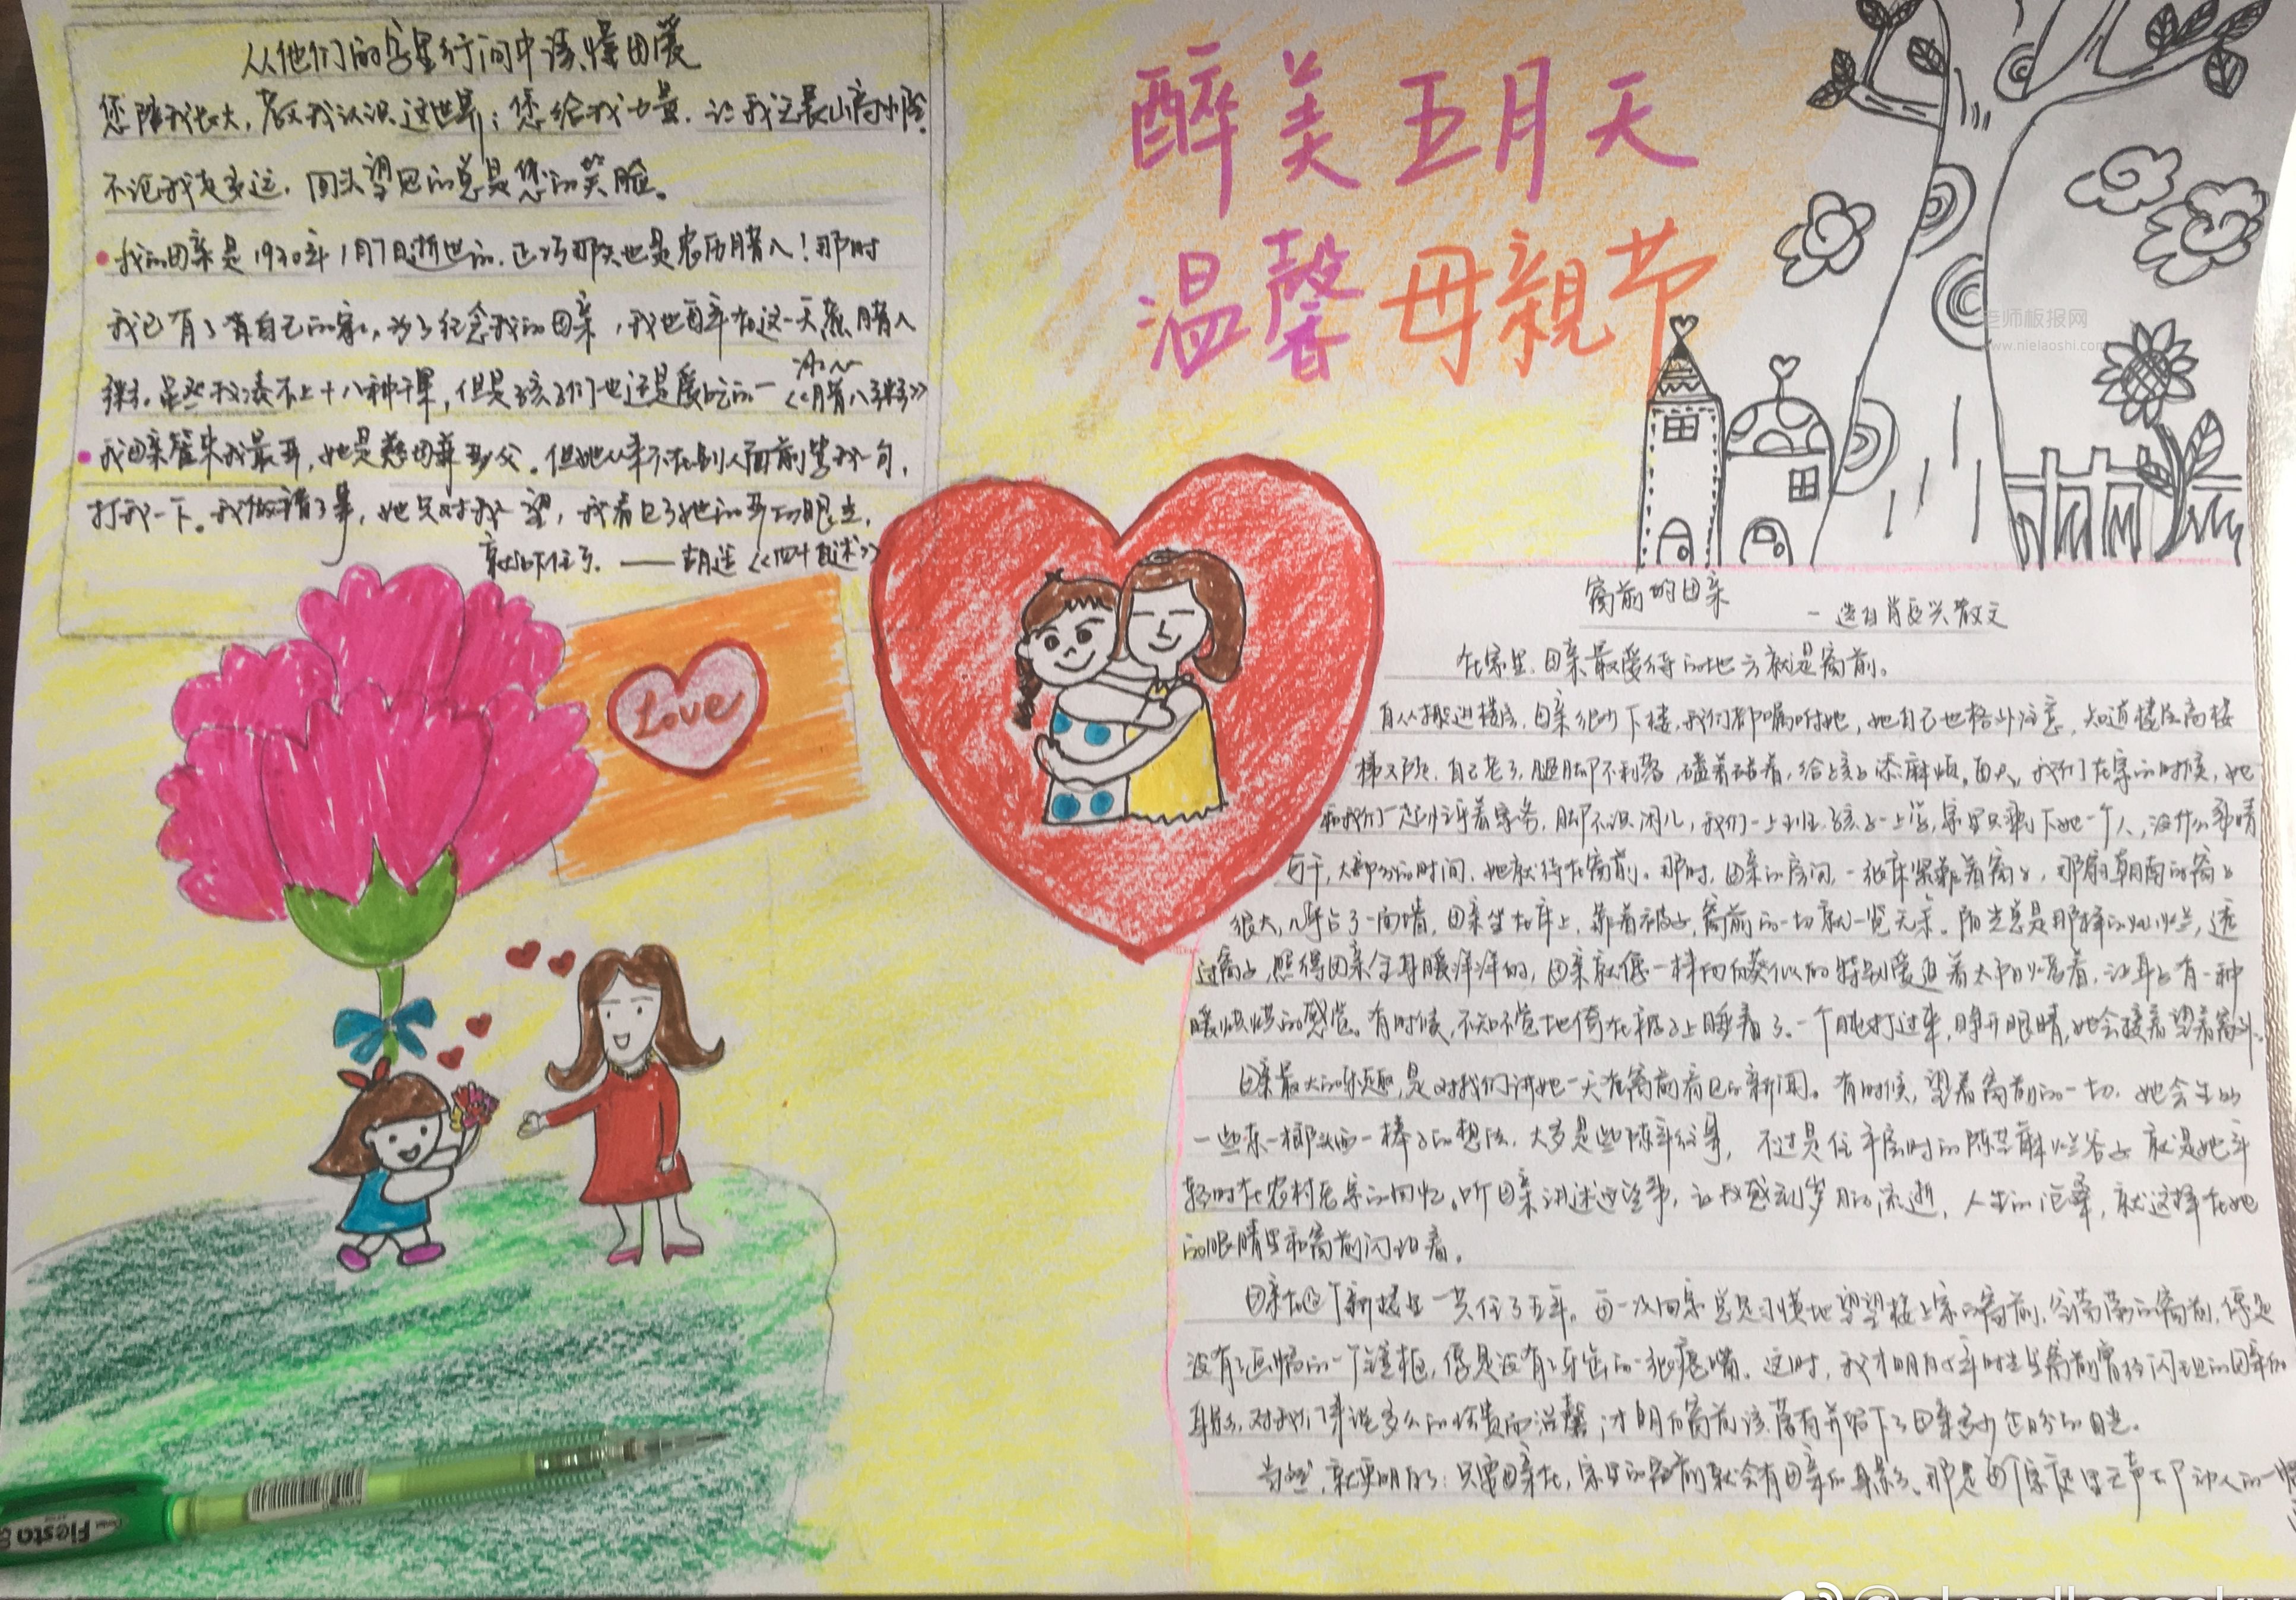 从他们的字里行间中读懂母爱
您陪我长大，教我认识这世界；您给我力量，让我走最山高水险
不论我走多远，回头望见的总是您的笑脸。
我的母亲是1930年1月7日逝世的，正巧那天也是农历腊八！那时
我已有了有自己的家，为了纪念我的母亲，我也每年在这一天煮腊八
粥。虽然我凑不上十八种干果，但是孩子们也还是爱吃的 — 冰心《腊八粥》
我母亲管束我最严，她是慈母兼严父。但她从来不在别人面前骂我一句，
打我一下。我做错了事，她只对我一望，我看见了她的严厉眼光，
就吓住了。——胡适《四十自述》
醉美五月天
温馨母親节
老师板报网
www.nielaoshi.com
Love
窗前的母亲
— 选自肖复兴散文
在家里，母亲最爱待的地方就是窗前。
自从搬进楼房，母亲很少下楼，我们都嘱咐她，她自己也格外注意，知道楼层高楼
梯又陡，自己老了，腿脚不利落，磕着碰着，给孩子添麻烦。每天，我们在家的时候，她
和我们一起忙乎着家务，脚不识闲儿，我们一上班，孩子一上学，家里只剩下她一个人，没什么事情
可干，大部分的时间，她就待在窗前。那时，母亲的房间，一张床紧靠着窗子，那扇朝南的窗子
很大，几乎占了一面墙，母亲坐在床上，靠着被子，窗前的一切就一览无余。阳光总是那样的灿烂，透
过窗子，照得母亲全身暖洋洋的，母亲就像一株向日葵似的特别爱追着太阳烤着，让身子有一种
暖烘烘的感觉。有时候，不知不觉地倚在被子上睡着了，一个盹打过来，睁开眼睛，她会接着望着窗外。
母亲最大的乐趣，是对我们讲她一天在窗前看见的新闻。有时候，望着窗前的一切，她会生出
一些东一榔头西一棒子的想法，大多是些陈年往事，不过是住平房时的陈芝麻烂谷子，就是她年
轻时在农村老家的回忆。听母亲讲述这些事，让我感到岁月的流逝，人生的沧桑，就这样在她
的眼睛里和窗前闪现着。
母亲在这个新楼里一共住了五年。每一次回家总是习惯地望望楼上家的窗前，空荡荡的窗前，像是
没有了画幅的一个镜框，像是没有了牙齿的一张瘪嘴。这时，我才明白五年时光里窗前曾经闪现的母亲的
身影，对我们来说多么的珍贵而温馨；才明白窗前该落有并留下了母亲多少企盼的目光。
当然，就更明白了：只要母亲在，家里的窗前就会有母亲的身影。那是每个家庭里无声却动人的一幅
Fiesta